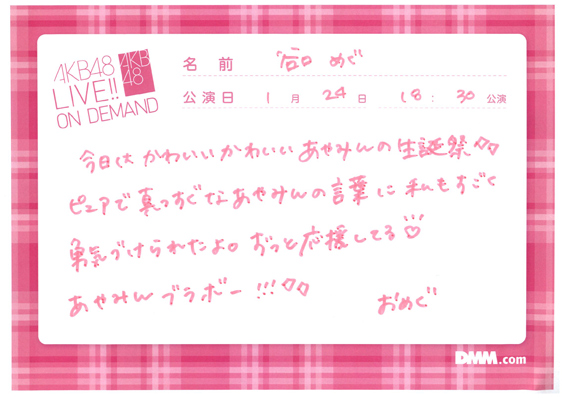 AKB48
LIVE!!
ON DEMAND
AKB
48
名 前 谷口 めぐ
公演日 1 月 24 日 18 : 30 公演
今日は かわいいかわいい あやみんの 生誕祭
ピュアで 真っすぐな あやみんの 言葉に 私もすごく
勇気づけられたよ。ずっと 応援してる♡
あやみん ブラボー!!!
おめぐ
DMM.com